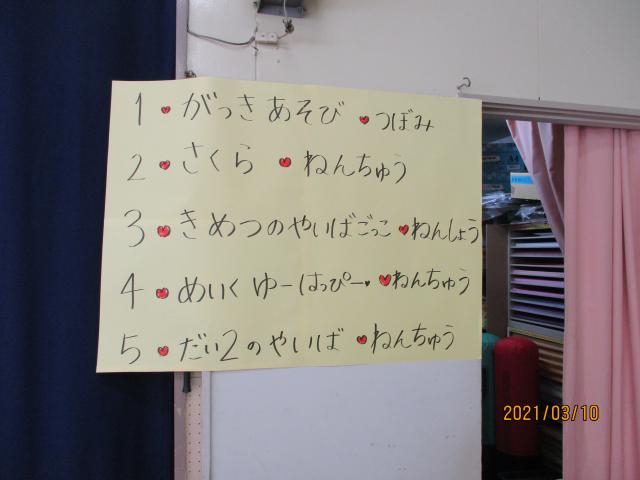 1♥がっきあそび ♥つぼみ
2♥さくら ♥ねんちゅう
3♥きめつのやいばごっこ♥ねんしょう
4♥めいくゆーはっぴー♥♥ねんちゅう
5♥だい2のやいば ♥ねんちゅう
2021/03/10